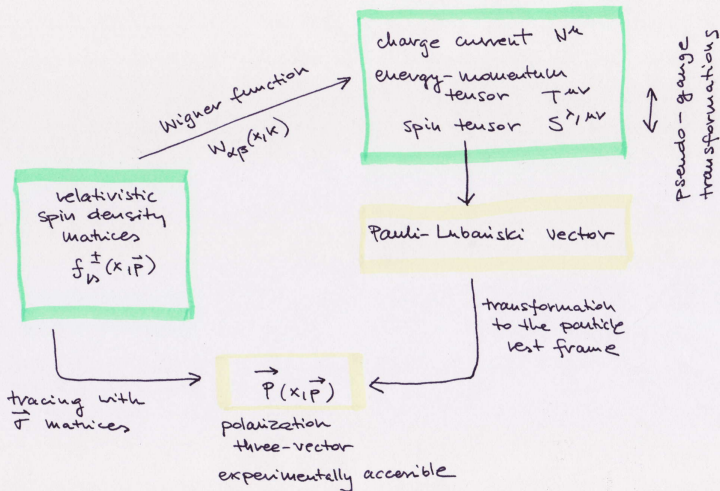 charge current N^μ
energy-momentum
tensor T^μν
spin tensor S^λ,μν
pseudo-gauge
transformations
Wigner function
W_αβ(x,k)
relativistic
spin density
matrices
f_rs^±(x,p⃗)
Pauli-Lubański vector
transformation
to the particle
rest frame
tracing with
σ⃗ matrices
P⃗(x,p⃗)
polarization
three-vector
experimentally accesible